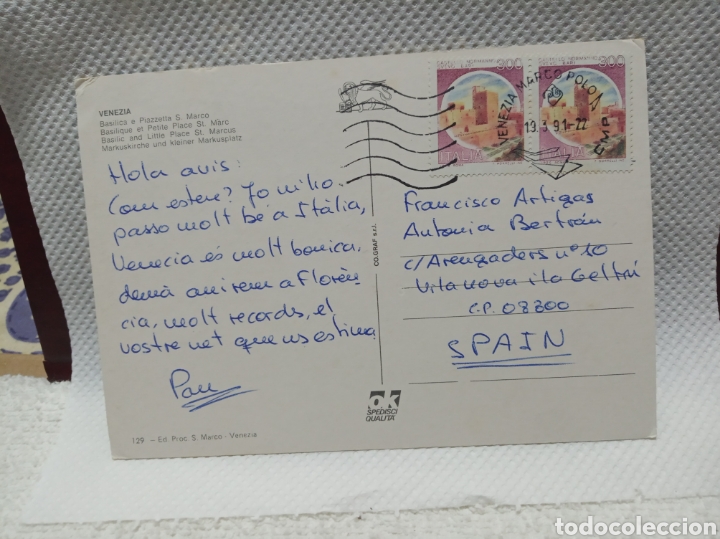 VENEZIA
Basilica e Piazzetta S. Marco
Basilique et Petite Place St. Màrc
Basilic and Little Place St. Marcus
Markuskirche und kleiner Markusplatz
Hola avis:
Com esteu? Jo m'ho
passo molt bé a Itàlia,
Venecia és molt bonica,
demà anirem a Florèn
cia, molt records, el
vostre net que us estima
Pau
129 - Ed. Proc. S. Marco - Venezia
CO.GRAF s.r.l.
ok
SPEDISCI
QUALITÀ
300
300
ITALIA
ITALIA
VENEZIA MARCO POLO
19.3.91-22
CMP
Francisco Artigas
Antonia Bertrán
c/Arengaders nº 10
Vilanova i la Geltrú
C.P. 08800
SPAIN
todocoleccion